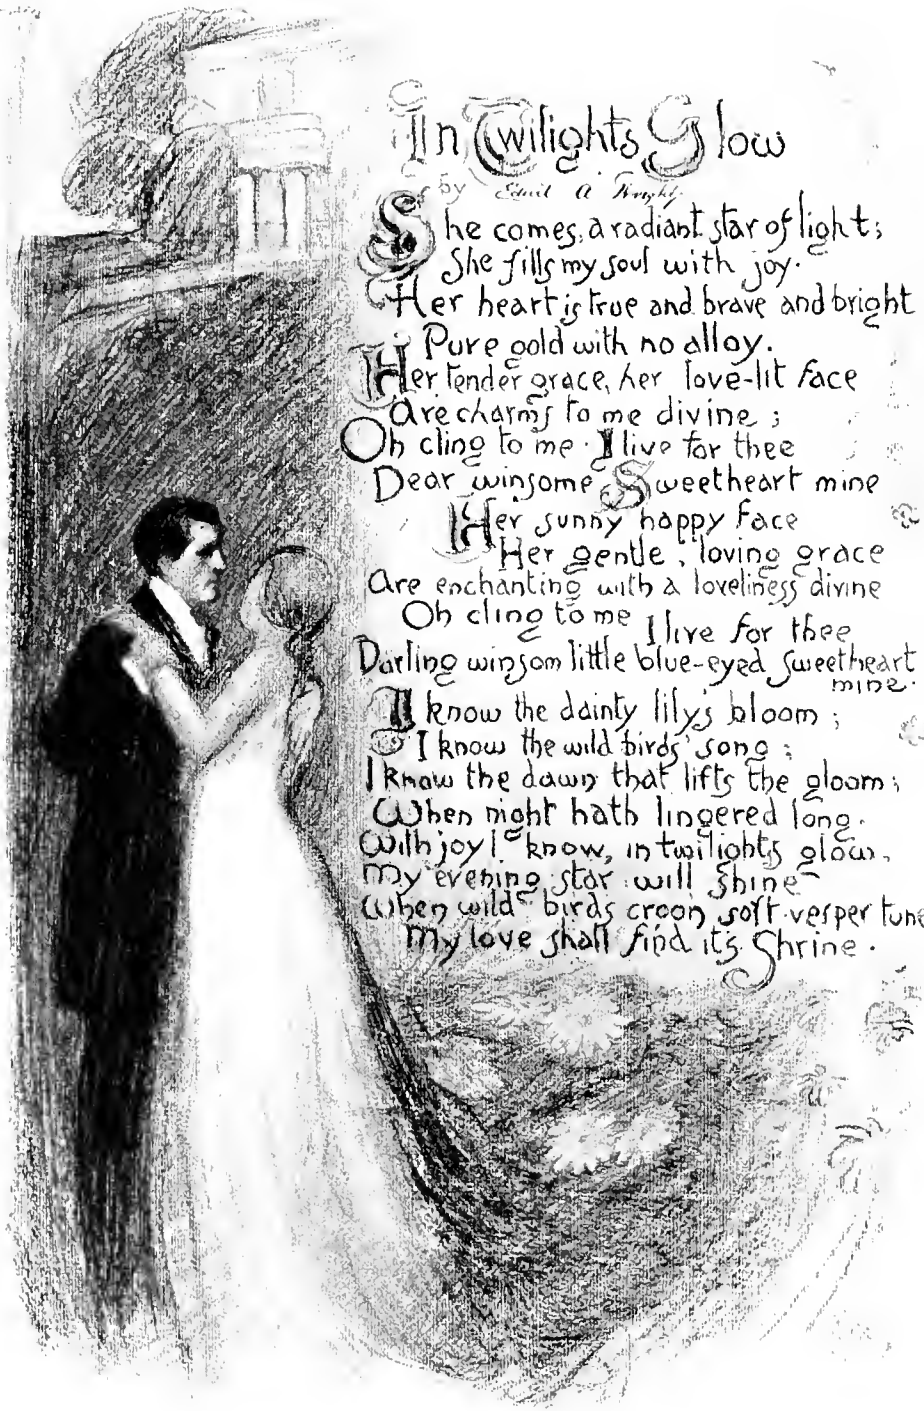 In Twilights Glow
by Edwil A Wright
She comes, a radiant star of light;
She fills my soul with joy.
Her heart is true and brave and bright
Pure gold with no alloy.
Her tender grace, her love-lit face
Are charms to me divine ;
Oh cling to me . I live for thee
Dear winsome Sweetheart mine
Her sunny happy face
Her gentle , loving grace
Are enchanting with a loveliness divine
Oh cling to me I live for thee
Darling winsom little blue-eyed sweetheart
mine.
I know the dainty lily's bloom ;
I know the wild birds' song ;
I know the dawn that lifts the gloom ;
When night hath lingered long.
With joy I know, in twilights glow,
My evening star will shine
When wild birds croon soft vesper tune
My love shall find its Shrine .